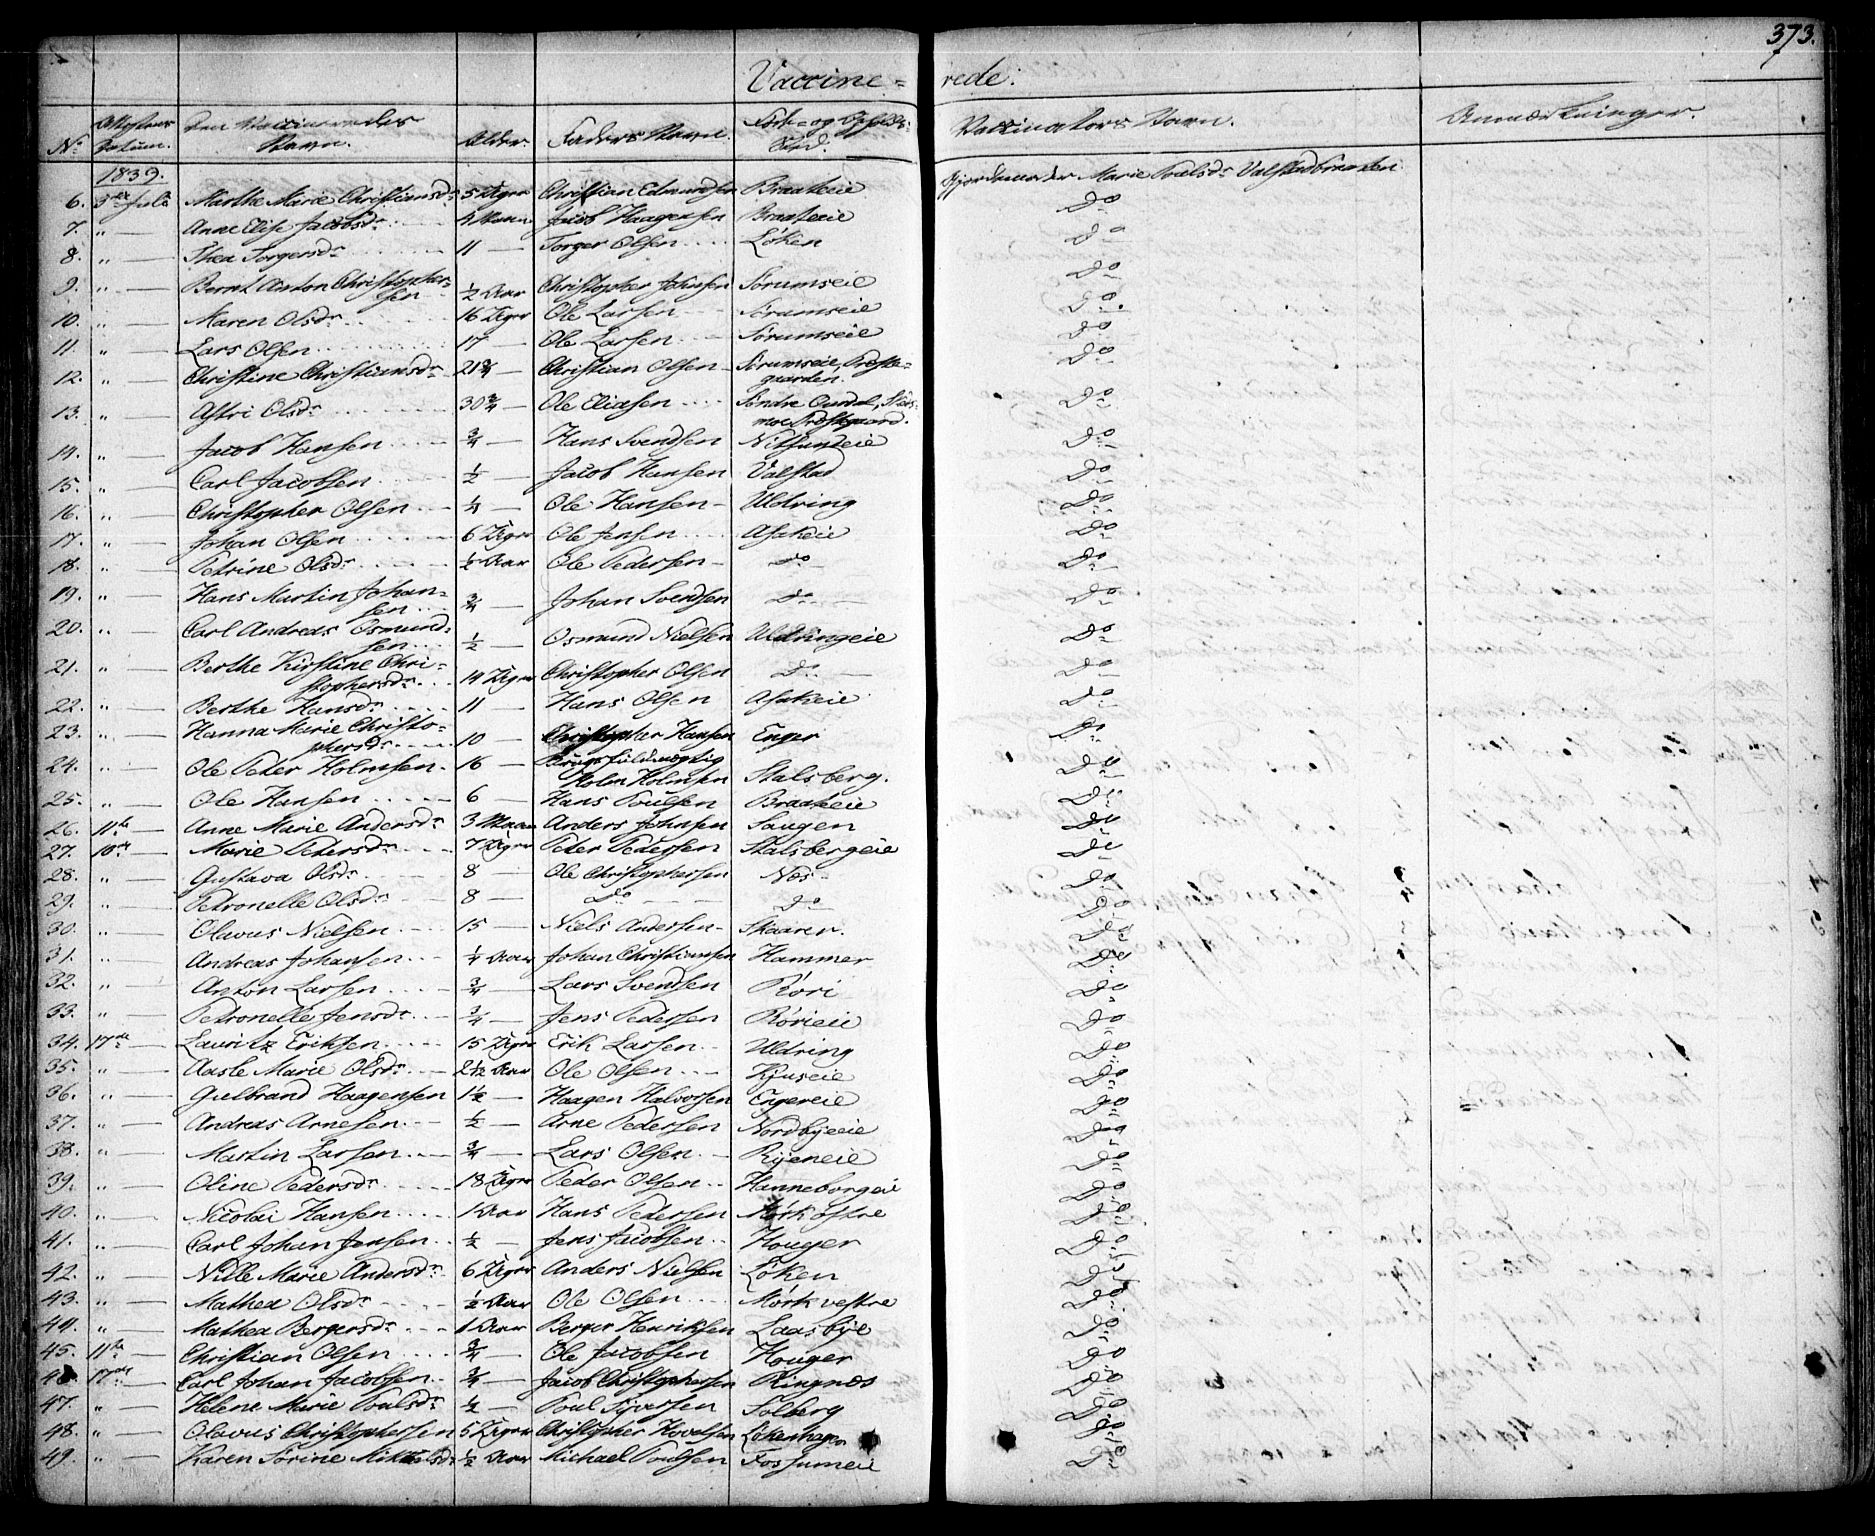 373.
Vaccine= rede.
No. Attestens Datum. Den Vaccineredes Navn. Alder. Faders Navn. Føde- og Opholds Sted. Vaccinators Navn. Anmærkninger.
1839.
6. 3die Juli Marthe Marie Christiansdr 5 Uger Christian Edmundsen Braateeie Gjordemoder Marie Poulsdr Valstadbraaten
7. " — Anne Elise Jacobsdr 4 Maan Jacob Haagensen Braateeie Do
8. " — Thea Torgersdr 11 — Torger Olsen Løken Do
9. " — Bernt Anton Christopher=
sen ½ Aar Christopher Johnsen Sørumseie Do
10. " — Maren Olsdr 16 Uger Ole Larsen Sørumseie Do
11. " — Lars Olsen 17 — Ole Larsen Sørumseie Do
12. " — Christine Christiansdr 21¾ — Christian Olsen Sørumseie, Præste=
gaarden. Do
13. " Astri Olsdr 30¾ — Ole Eliasen Søndre
Præstgaard. Do
14. " — Jacob Hansen ¾ — Hans Svendsen Nitsundeie Do
15. " — Carl Jacobsen ½ — Jacob Hansen Valstad Do
16. " — Christopher Olsen ¼ — Ole Hansen Uldring Do
17. " — Johan Olsen 6 Uger Ole Jensen Asakeie Do
18. " — Petrine Olsdr ½ Aar Ole Pedersen Do Do
19. " — Hans Martin Johan=
sen ¾ — Johan Svendsen Do Do
20. " — Carl Andreas Osmund=
sen ½ — Osmund Nielsen Uldringeie Do
21. " — Berthe Kirstine Chri=
stophersdr 14 Uger Christopher Olsen Do Do
22. " — Berthe Hansdr 11 — Hans Olsen Asakeie Do
23. " — Hanna Marie Christo=
phersdr 10 — Christopher Hansen Enger Do
24. " — Ole Peter Holmsen 16 — Brugsfuldmægtig
Holm Holmsen Stalsberg. Do
25. " — Ole Hansen 6 — Hans Poulsen Braateeie Do
26. 11te — Anne Marie Andersdr 3 Maan Anders Johnsen Saugen Do
27. 10de — Marie Pedersdr 7 Uger Peder Pedersen Stalsbergeie Do
28. " — Gustava Olsdr 8 — Ole Christophersen Næs Do
29. " — Petronelle Olsdr 8 — Do Do Do
30. " — Olavus Nielsen 15 — Niels Andersen Skaarer. Do
31. " — Andreas Johansen ¼ Aar Johan Christiansen Hammer Do
32. " — Anton Larsen ¾ — Lars Svendsen Röri Do
33. " — Petronelle Jensdr ¾ — Jens Pedersen Rörieie Do
34. 17de — Lauritz Eriksen 15 Uger Erik Larsen Uldring Do
35. " — Aasle Marie Olsdr 2½ Aar Ole Olsen Kjuseie Do
36. " — Gulbrand Haagensen 1½ — Haagen Halvorsen Engereie Do
37. " — Andreas Arnesen ½ — Arne Pedersen Nordbyeeie Do
38. " — Martin Larsen ¾ — Lars Olsen Ryeneie Do
39. " — Oline Pedersdr 18 Uger Peder Olsen Hanneborgeie Do
40. " — Nicolai Hansen 1 Aar Hans Pedersen Mörk östre Do
41. " — Carl Johan Jensen ½ — Jens Jacobsen Houger Do
42. " — Nille Marie Andersdr 6 Uger Anders Nielsen Løken Do
43. " — Mathea Olsdr ½ Aar Ole Olsen Mörk vestre Do
44. " — Mathea Bergersdr 1 Aar Berger Henriksen Laasbye Do
45. 11te — Christian Olsen ¾ — Ole Jacobsen Houger Do
46 17de — Carl Johan Jacobsen ¾ — Jacob Christophersen Ringnæs Do
47. " — Helene Marie Poulsdr ½ — Poul Syversen Solberg Do
48. " — Olavus Christophersen 5 Uger Christopher Hovelsen Løkenhagen Do
49. " — Karen Sörine Mikkelsdr ½ Aar Michael Poulsen Fossumeie Do